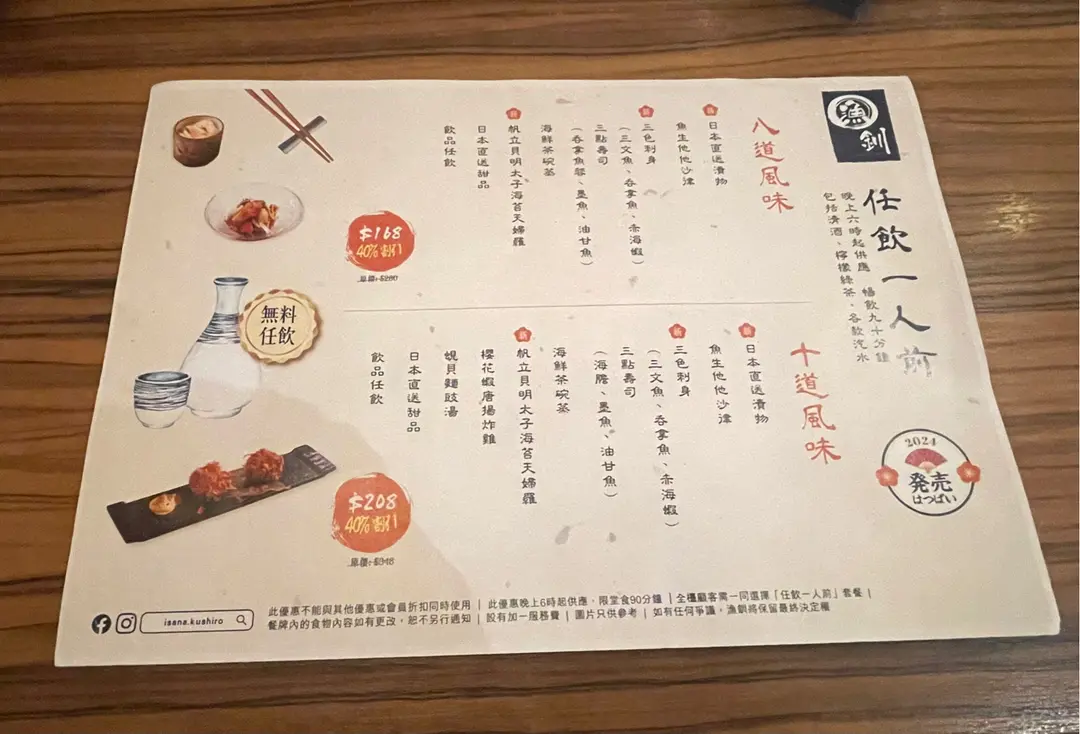 漁釧
任飲一人前
晚上六時起供應 暢飲九十分鐘
包括清酒、檸檬綠茶、各款汽水
2024
発売
はつばい
八道風味
新
日本直送漬物
魚生他他沙律
新
三色刺身
(三文魚、吞拿魚、赤海蝦)
三點壽司
(吞拿魚蓉、墨魚、油甘魚)
海鮮茶碗蒸
新
帆立貝明太子海苔天婦羅
日本直送甜品
飲品任飲
$168
40%割引
原價:$280
十道風味
新
日本直送漬物
魚生他他沙律
新
三色刺身
(三文魚、吞拿魚、赤海蝦)
三點壽司
(海膽、墨魚、油甘魚)
海鮮茶碗蒸
新
帆立貝明太子海苔天婦羅
櫻花蝦唐揚炸雞
蜆貝麵豉湯
日本直送甜品
飲品任飲
$208
40%割引
原價:$348
無料
任飲
isana.kushiro
此優惠不能與其他優惠或會員折扣同時使用 | 此優惠晚上6時起供應,限堂食90分鐘 | 全檯顧客需一同選擇「任飲一人前」套餐 |
餐牌內的食物內容如有更改,恕不另行通知 | 設有加一服務費 | 圖片只供參考 | 如有任何爭議,漁釧將保留最終決定權